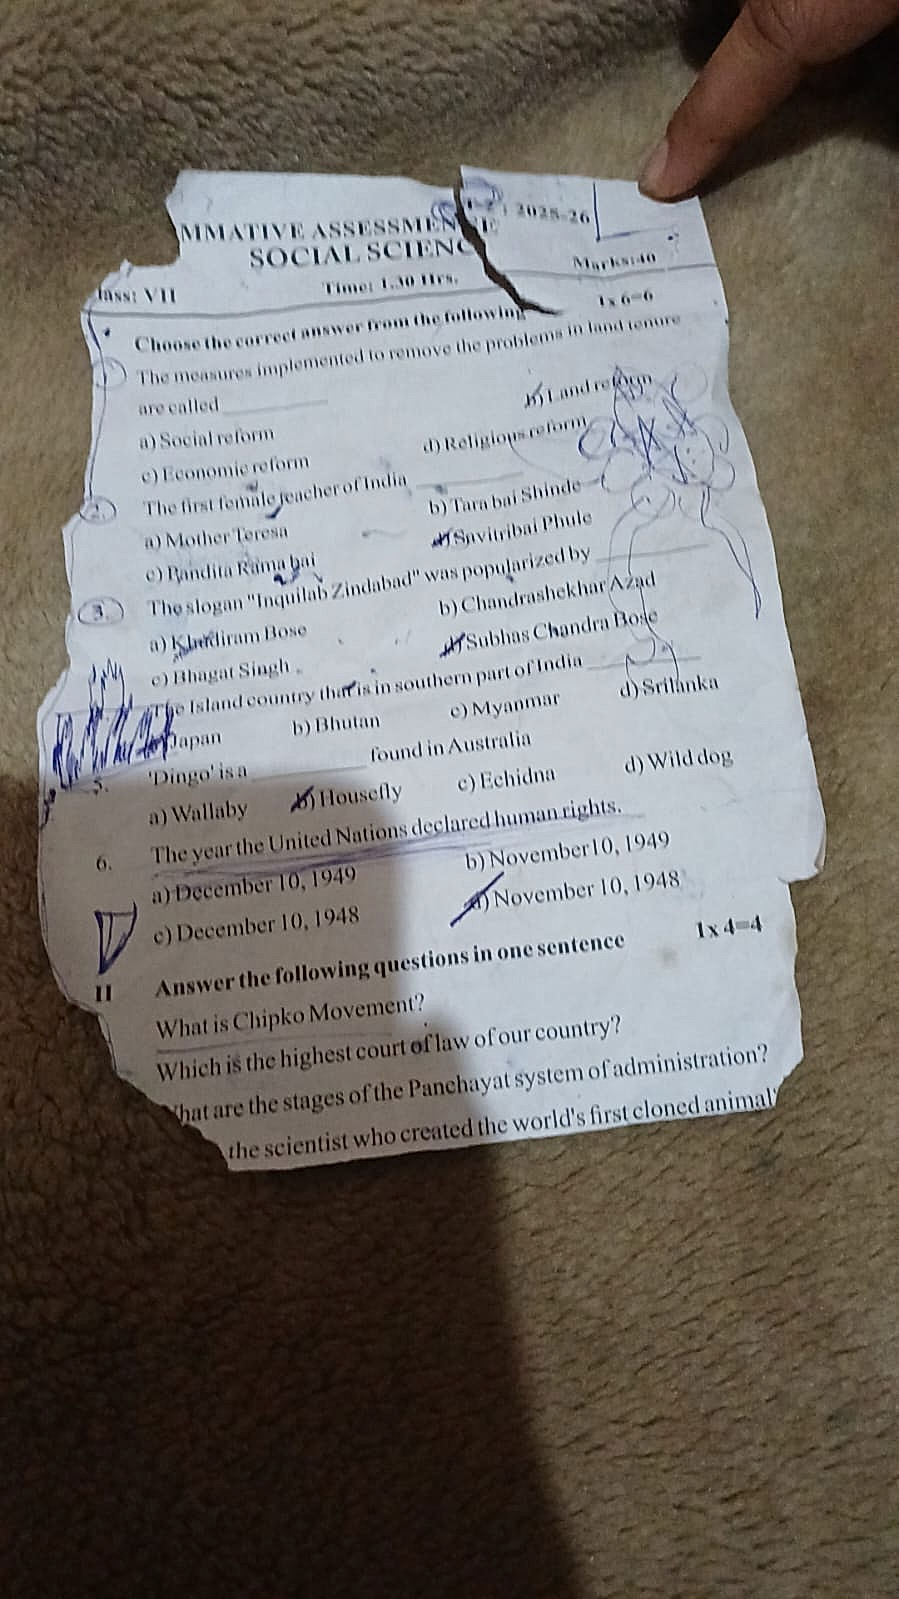 MMATIVE ASSESSMEN 2025-26
SOCIAL SCIENC
lass: VII Time: 1.30 Hrs. Marks:40
Choose the correct answer from the following 1x6=6
The measures implemented to remove the problems in land tenure
are called ________
a) Social reform b) Land reform
c) Economic reform d) Religious reform
2. The first female teacher of India ________
a) Mother Teresa b) Tara bai Shinde
c) Pandita Rama bai d) Savitribai Phule
3. The slogan "Inquilab Zindabad" was popularized by ________
a) Khudiram Bose b) Chandrashekhar Azad
c) Bhagat Singh d) Subhas Chandra Bose
The Island country that is in southern part of India ________
Japan b) Bhutan c) Myanmar d) Srilanka
5. 'Dingo' is a ________ found in Australia
a) Wallaby b) Housefly c) Echidna d) Wild dog
6. The year the United Nations declared human rights.
a) December 10, 1949 b) November10, 1949
c) December 10, 1948 d) November 10, 1948
II Answer the following questions in one sentence 1x4=4
What is Chipko Movement?
Which is the highest court of law of our country?
hat are the stages of the Panchayat system of administration?
the scientist who created the world's first cloned animal'